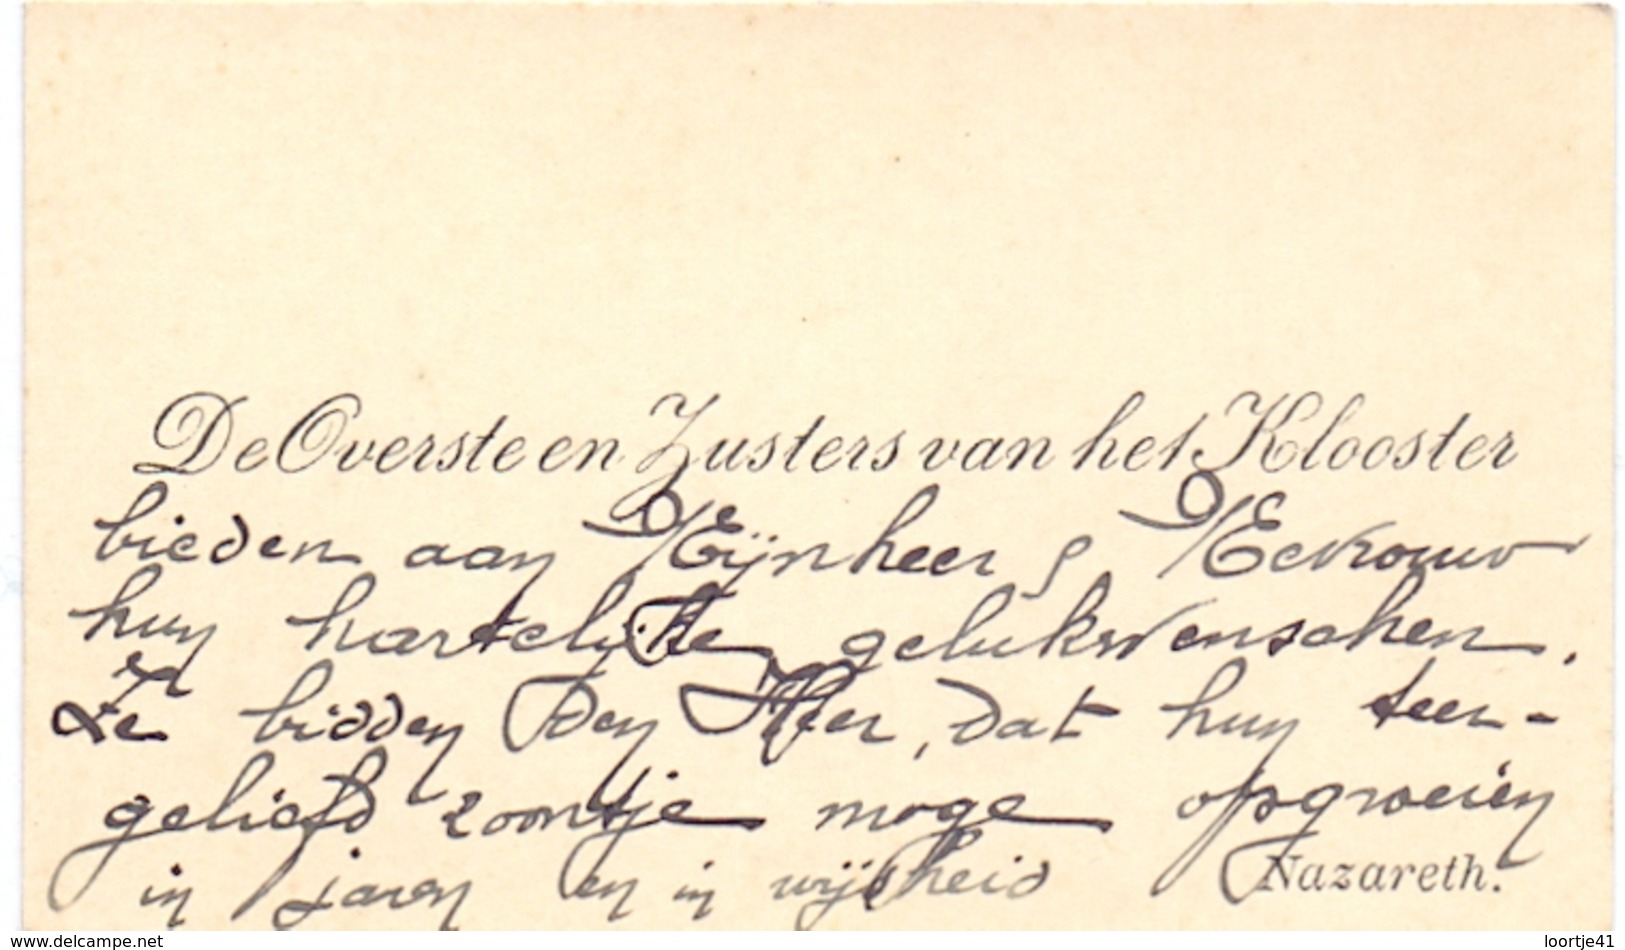 De Overste en Zusters van het Klooster
bieden aan Mijnheer & Mevrouw
hun hartelijke gelukwenschen.
Ze bidden den Heer, dat hun teer-
geliefd zoontje moge opgroeien
in jaren en in wijsheid
Nazareth.
www.delcampe.net
loortje41